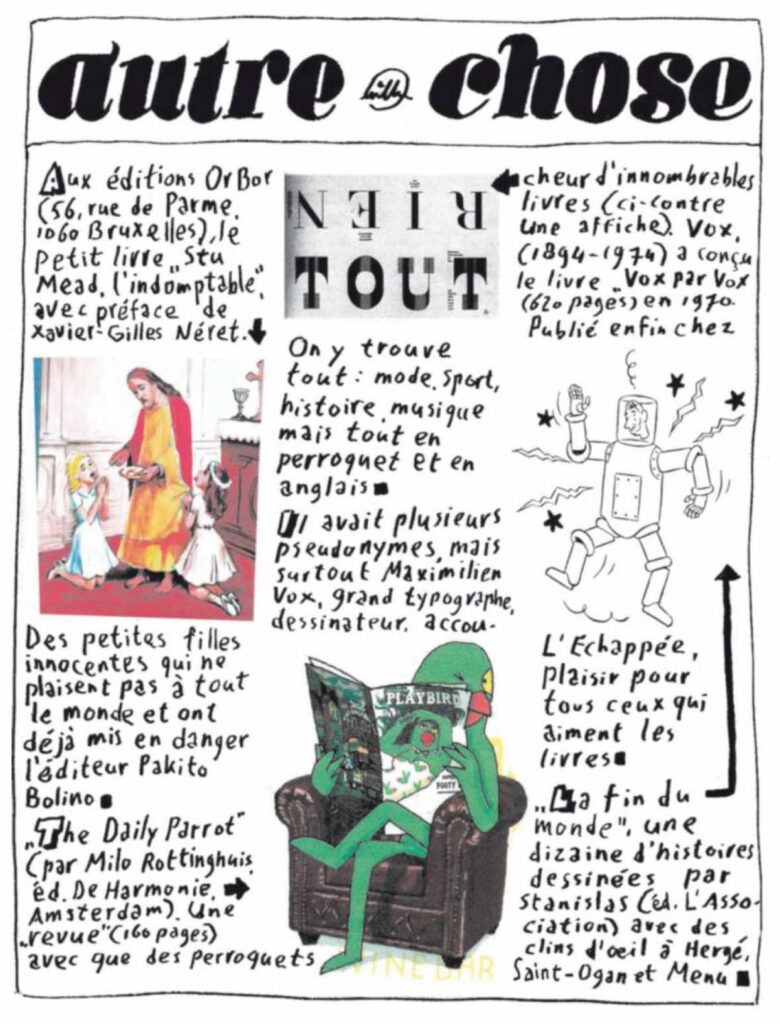 autre willem chose
Aux éditions OrBor
(56, rue de Parme,
1060 Bruxelles), le
petit livre „Stu
Mead, l'indomptable",
avec préface de
Xavier-Gilles Néret.
Des petites filles
innocentes qui ne
plaisent pas à tout
le monde et ont
déjà mis en danger
l'éditeur Pakito
Bolino
„The Daily Parrot"
(par Milo Rottinghuis,
éd. De Harmonie,
Amsterdam). Une
„revue" (160 pages)
avec que des perroquets
RIEN
TOUT
On y trouve
tout : mode, sport,
histoire, musique
mais tout en
perroquet et en
anglais
Il avait plusieurs
pseudonymes, mais
surtout Maximilien
Vox, grand typographe,
dessinateur, accou-
PLAYBIRD
FOOTY
WINE BAR
cheur d'innombrables
livres (ci-contre
une affiche). Vox,
(1894-1974) a conçu
le livre „Vox par Vox
(620 pages) en 1970.
Publié enfin chez
L'Echappée,
plaisir pour
tous ceux qui
aiment les
livres
„La fin du
monde", une
dizaine d'histoires
dessinées par
Stanislas (éd. L'Asso-
ciation) avec des
clins d'œil à Hergé,
Saint-Ogan et Menu